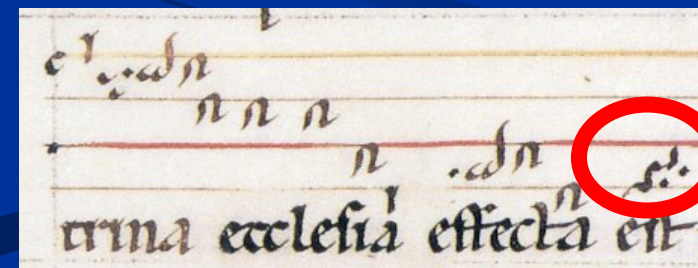 trina ecclesia effecta est